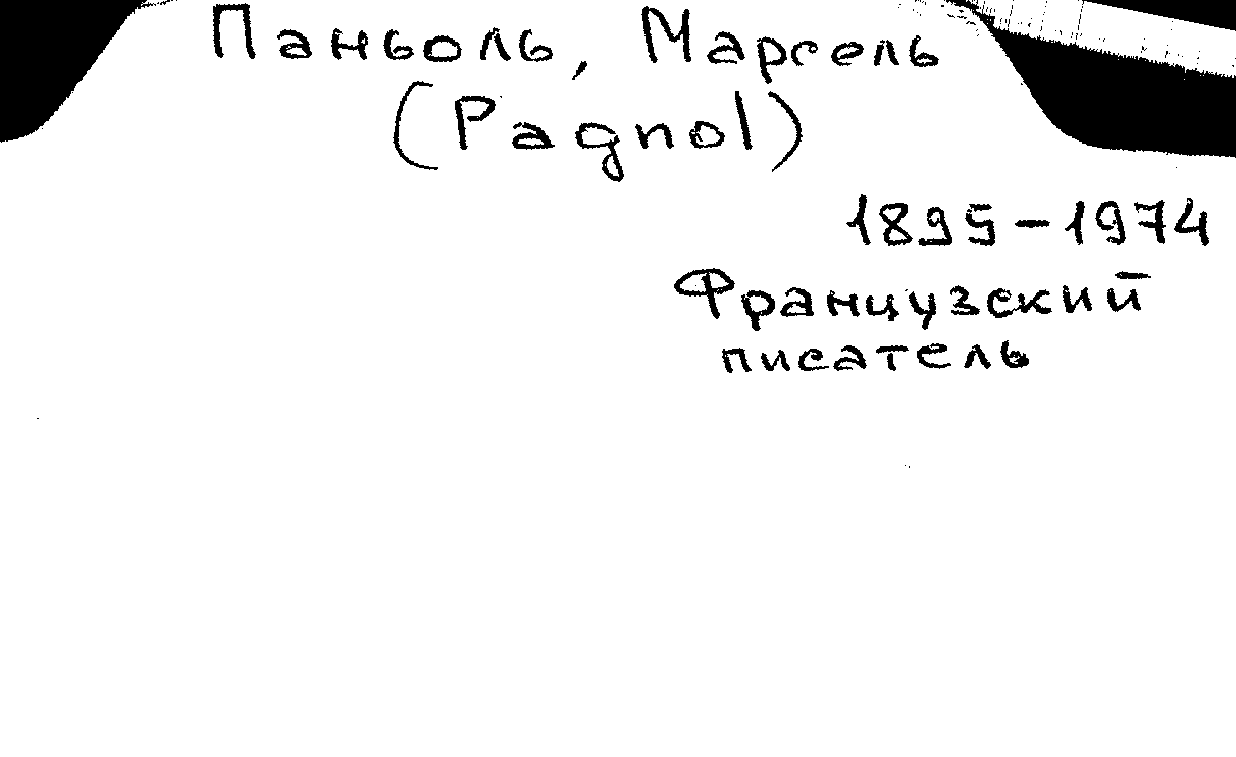 Паньоль, Марсель
(Pagnol)
1895-1974
Французский
писатель